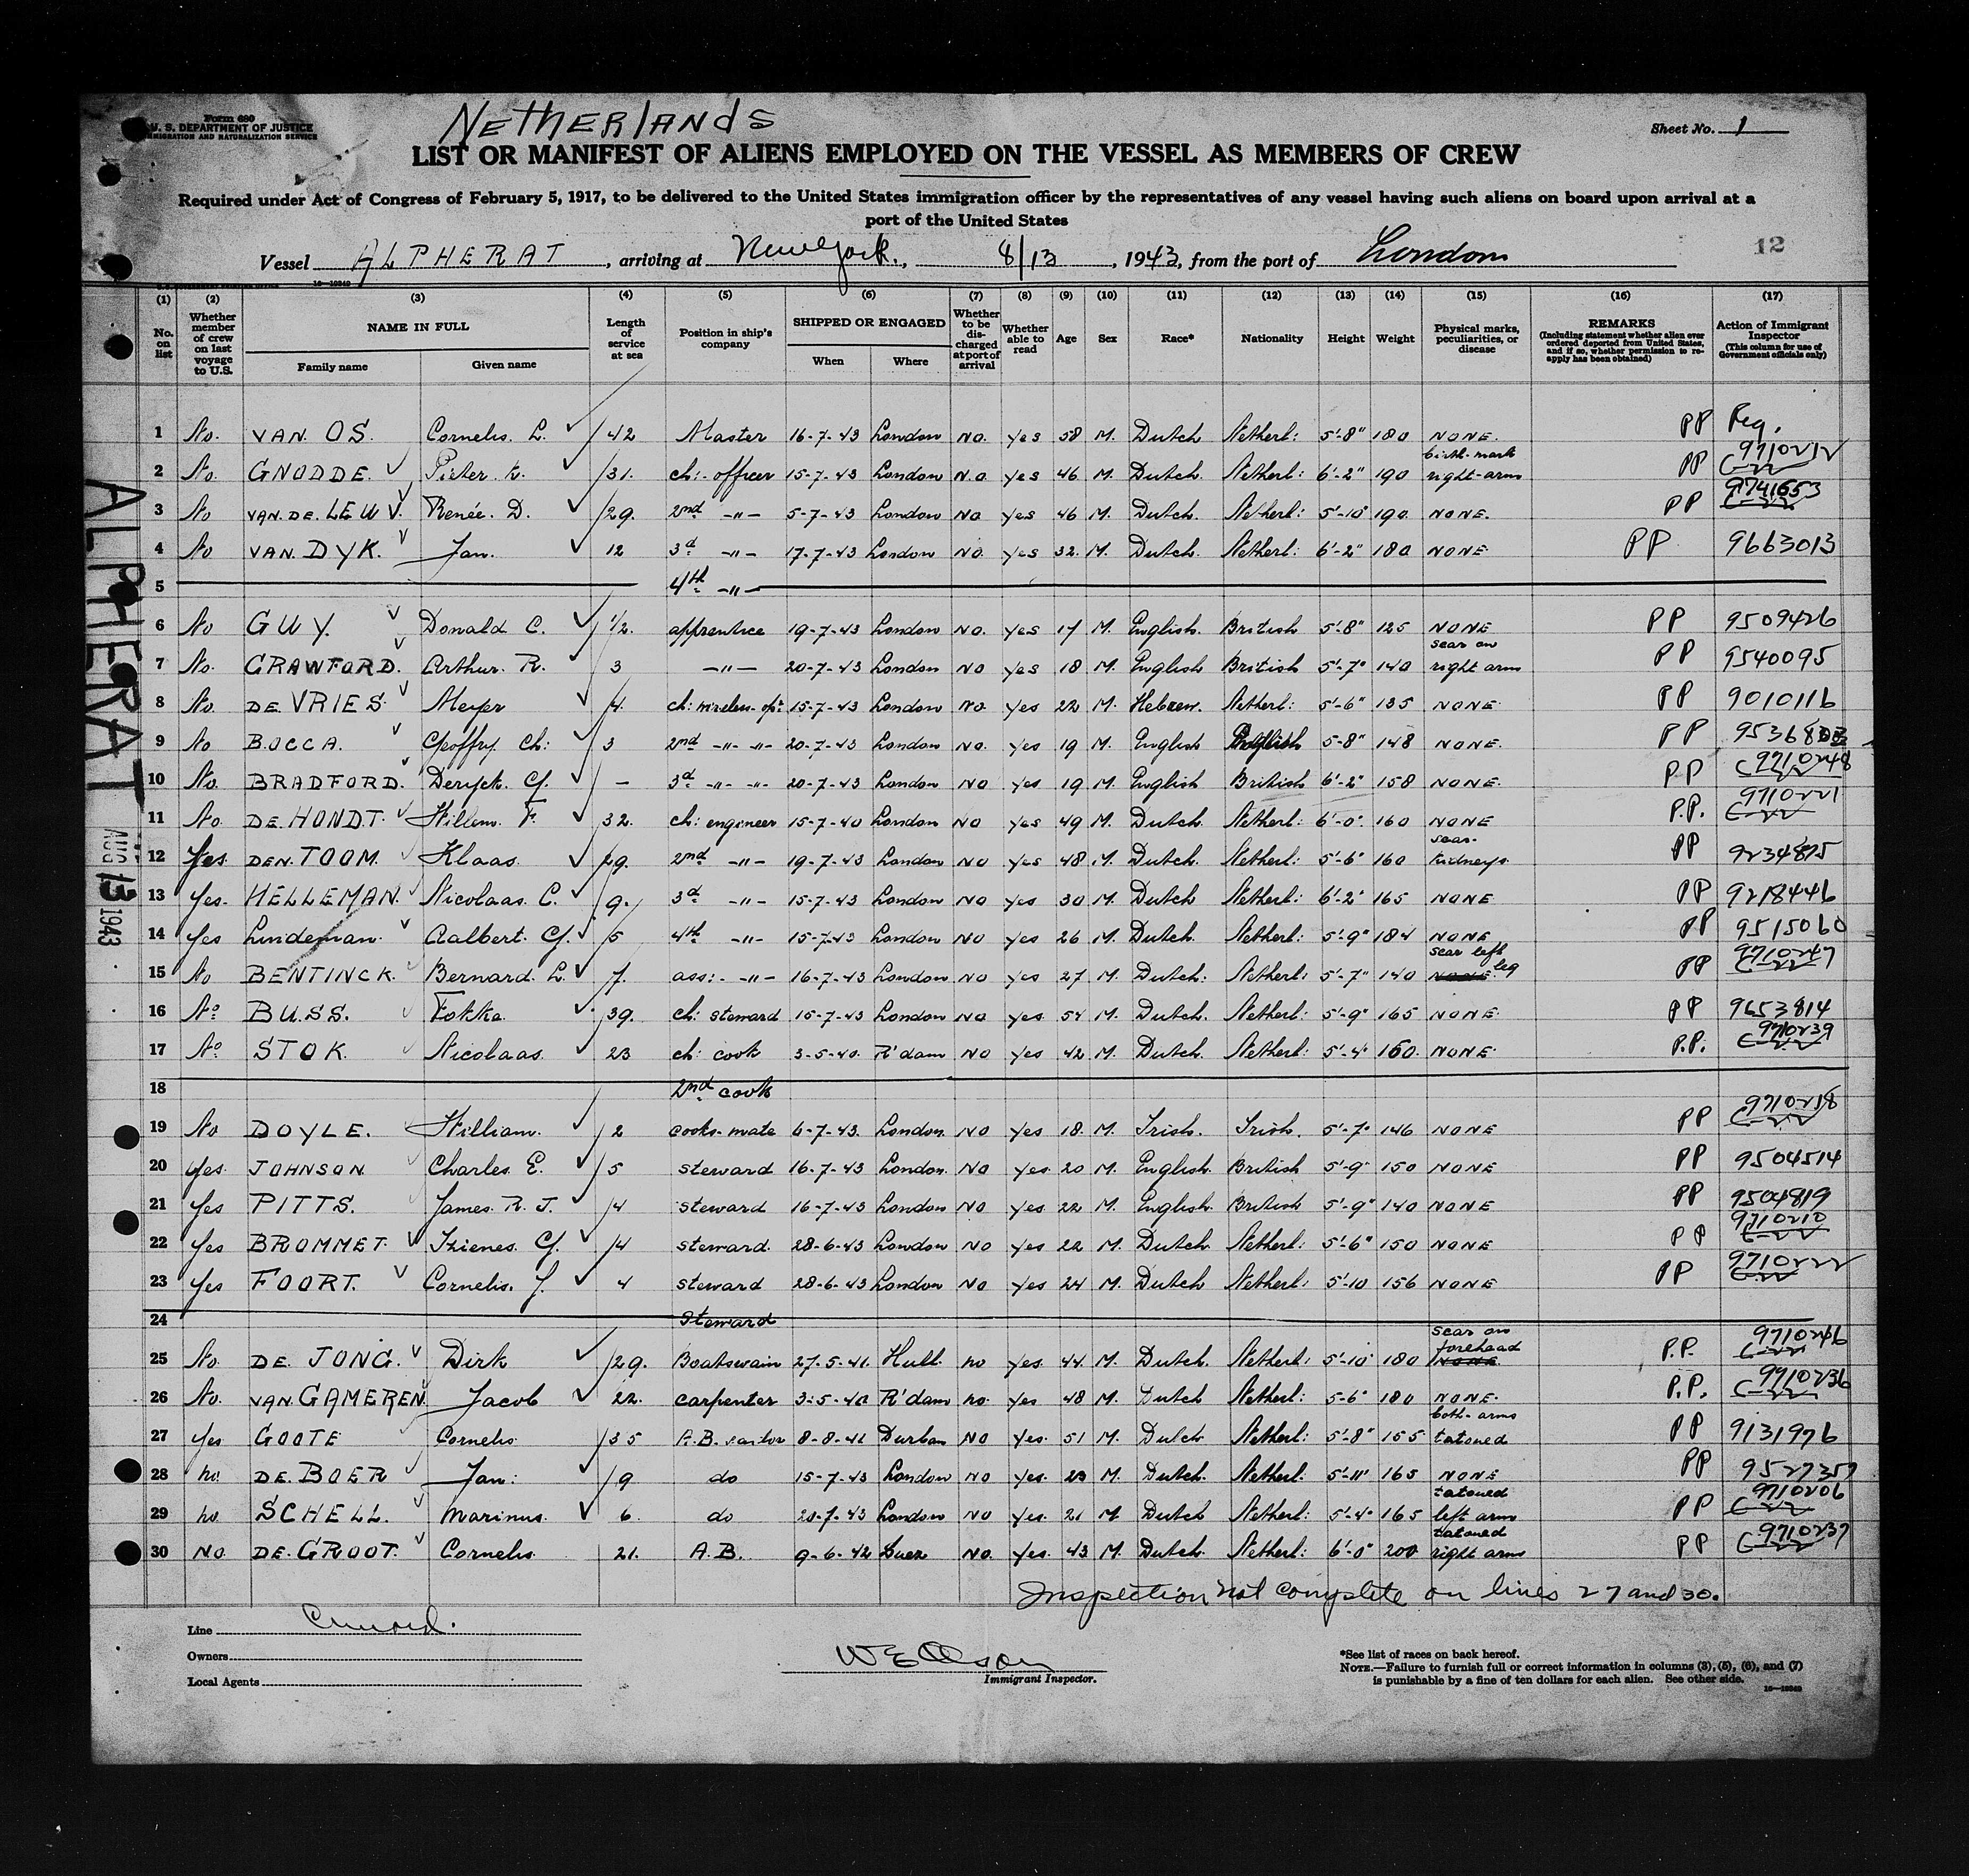 Form 680
U. S. DEPARTMENT OF JUSTICE
IMMIGRATION AND NATURALIZATION SERVICE
NETHERLANDS
Sheet No. 1
LIST OR MANIFEST OF ALIENS EMPLOYED ON THE VESSEL AS MEMBERS OF CREW
Required under Act of Congress of February 5, 1917, to be delivered to the United States immigration officer by the representatives of any vessel having such aliens on board upon arrival at a
port of the United States
12
Vessel ALPHERAT, arriving at New York., 8/13, 1943, from the port of London
(1) (2) (3) (4) (5) (6) (7) (8) (9) (10) (11) (12) (13) (14) (15) (16) (17)
No. on list Whether member of crew on last voyage to U.S. NAME IN FULL Family name Given name Length of service at sea Position in ship's company SHIPPED OR ENGAGED When Where Whether to be discharged at port of arrival Whether able to read Age Sex Race* Nationality Height Weight Physical marks, peculiarities, or disease REMARKS (Including statement whether alien ever ordered deported from United States, and if so, whether permission to reapply has been obtained) Action of Immigrant Inspector (This column for use of Government officials only)
1 No. VAN. OS. Cornelis. L. 42 Master 16-7-43 London No. yes 58 M. Dutch Netherl: 5'-8" 180 NONE. PP Req.
2 No. GNODDE. Pieter. 31. ch:-officer 15-7-43 London N.o. yes 46 M. Dutch Netherl: 6'-2" 190 birth-mark right-arm PP 9710212
3 No VAN.DE. Renée. D. 29. 2nd -"- 5-7-43 London No yes 46 M. Dutch. Netherl: 5'-10" 190. NONE. PP 9741653
4 No VAN. DYK. Jan. 12 3d -"- 17-7-43 London No. yes 32. M. Dutch. Netherl: 6'-2" 180 NONE PP 9663013
5 4th -"-
6 No GUY. Donald C. 1/2. apprentice 19-7-43 London No. yes 17 M. English. British 5'-8" 125 NONE PP 9509426
7 No. CRAWFORD. Arthur. R. 3 -"- 20-7-43 London No yes 18 M. English British 5'-7" 140 scar on right arm PP 9540095
8 No. DE. VRIES. Meyer 4. ch: wireless-opr 15-7-43 London No. yes 22 M. Hebrew. Netherl: 5'-6" 135 NONE PP 9010116
9 No BOCCA. Geoffry Ch: 3 2nd -"- -"- 20-7-43 London No. yes 19 M. English 5-8" 148 NONE. PP
10 No. BRADFORD. Deryck. G. - 3d -"- -"- 20-7-43 London No yes 19 M. English British 6'-2" 158 NONE. PP 9710248
11 No. DE. HONDT. Willem. F. 32. ch: engeneer 15-7-40 London No yes 49 M. Dutch. Netherl: 6'-0" 160 NONE P.P. 9710221
12 Yes. DEN. TOOM. Klaas. 29. 2nd -"- 19-7-43 London No yes 48 M. Dutch. Netherl: 5'-6" 160 scar- kidneys. PP 9234875
13 Yes. HELLEMAN. Nicolaas. C. 9. 3d -"- 15-7-43 London No yes 30 M. Dutch Netherl: 6'-2" 165 NONE PP 9218446
14 Yes Lindeman. Aalbert. G. 5 4th -"- 15-7-43 London No yes 26 M. Dutch. Netherl: 5'-9" 184 NONE PP 9515060
15 No BENTINCK. Bernard. L. 7. ass:- -"- 16-7-43 London No yes 27 M. Dutch. Netherl: 5'-7" 140 scar left leg NONE PP 9710247
16 No BUSS. Fokke. 39. ch: steward 15-7-43 London No yes. 54 M. Dutch. Netherl: 5'-9" 165 NONE. PP 9653814
17 No STOK. Nicolaas. 23 ch: cook 3-5-40. R'dam No yes 42 M. Dutch. Netherl: 5'-4" 160. NONE P.P. 9710239
18 2nd cook
19 No DOYLE. William. 2 cooks-mate 6-7-43. London. No yes 18. M. Irish. Irish. 5'-7" 146 NONE PP 9710218
20 Yes. JOHNSON Charles. E. 5 steward 16-7-43 London. No yes. 20 M. English. British 5'-9" 150 NONE PP 9504514
21 Yes PITTS. James. R. J. 4 steward 16-7-43 London No yes 22 M. English. British 5'-9" 140 NONE PP 9504819
22 Yes BROMMET. G. 4 steward. 28-6-43 London No yes 22 M. Dutch Netherl: 5'-6" 150 NONE PP 9710210
23 Yes FOORT. Cornelis. J. 4 steward 28-6-43 London No yes 24 M. Dutch Netherl: 5'-10 156 NONE PP 9710222
24 Steward
25 No. DE. JONG. Dirk 29. Boatswain 27-5-41. Hull. no yes. 44. M. Dutch. Netherl: 5'-10" 180 scar on forehead NONE P.P. 9710246
26 No. VAN. GAMEREN. Jacob 22. carpenter 3-5-40 R'dam no. yes 48 M. Dutch Netherl: 5-6" 180 NONE. P.P. 9710236
27 Yes GOOTE Cornelis 35 A.B. sailor 8-8-41 Durban No yes. 51 M. Dutch Netherl: 5'-8" 155 both-arms tatoued PP 9131976
28 no. DE. BOER Jan: 9 do 15-7-43 London No yes. 23 M. Dutch. Netherl: 5'-11" 165 NONE PP 9527357
29 no. SCHELL. Marinus. 6. do 20-7-43 London No yes. 21 M Dutch Netherl: 5'-4" 165 tatoued left arm PP 9710206
30 No. DE. GROOT. Cornelis. 21. A.B. 9-6-42 Suez No. yes. 43 M. Dutch. Netherl: 6'-0" 200 tatoued right arm PP 9710237
Inspection not complete on lines 27 and 30.
ALPHERAT
AUG 13 1943
Line Cunard.
Owners
Local Agents
W E Olson
Immigrant Inspector.
*See list of races on back hereof.
NOTE.—Failure to furnish full or correct information in columns (3), (5), (6), and (7)
is punishable by a fine of ten dollars for each alien. See other side.